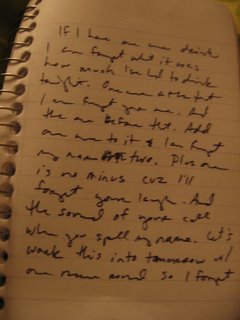 If I have one more drink
I can forget what it was
how much I've had to drink
tonight. One more after that
I can forget you me. And
the one before that. Add
one more to it & I can forget
my name two. Plus one
is no minus cuz I'll
forget your laugh. And
the sound of your
when you spell my name. Let's
work this into tomorrow w/
one more round so I forget